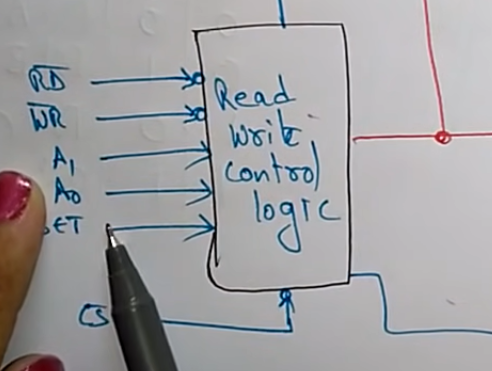 R̅D̅
W̅R̅
A₁
A₀
SET
CS
Read
Write
Control
logic